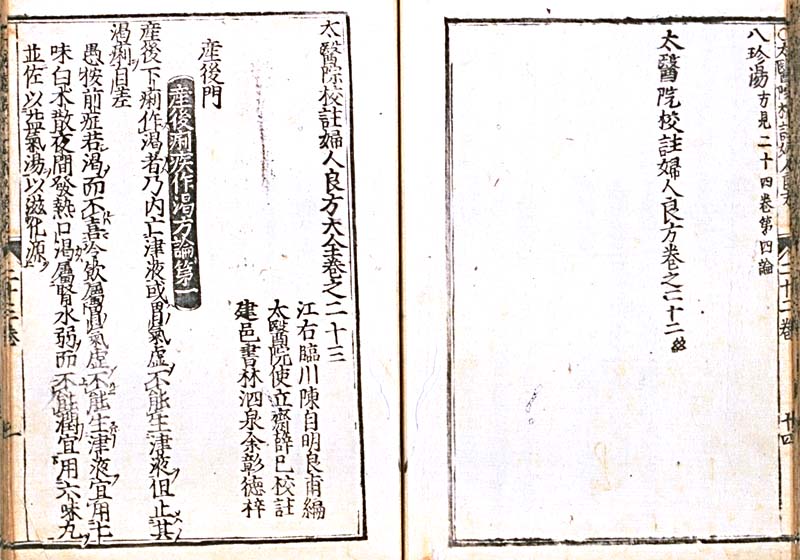 八珍湯方見二十四卷第四論
太醫院校註婦人良方卷之二十二終
太醫院校註婦人良方大全卷之二十三
江右臨川陳自明良甫編
太醫院使立齋薛己校註
建邑書林泗泉余彰德梓
產後門
產後痢疾作渴方論第一
產後下痢作渴者乃內亡津液或胃氣虛不能生津液但止其
渴痢自差
愚按前症若渴而不喜冷飲屬胃氣虛不能生津液宜用七
味白朮散夜間發熱口渴屬腎水弱而不能潤宜用六味丸
並佐以益氣湯以滋化源